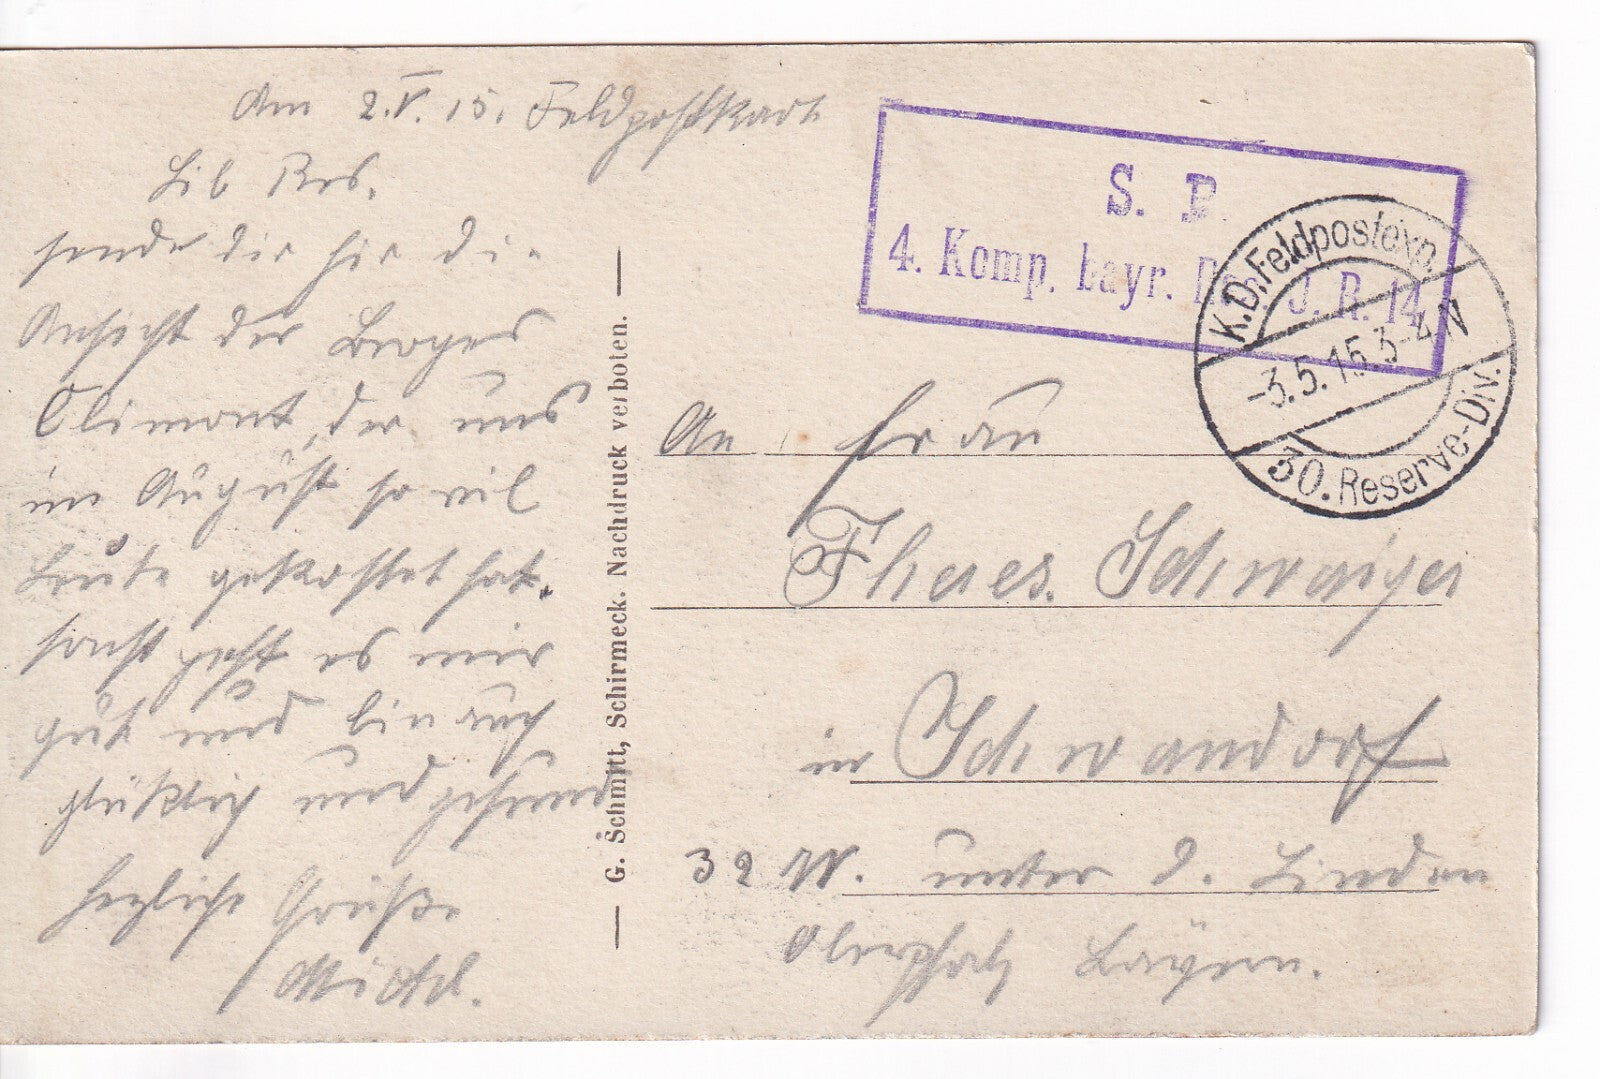 Am 2.V.15. Feldpostkart
Lib Res.
sende dir hir di.
Ansicht der Berges
Climont, der uns
im August so vil
Leute gekostet hat.
sonst geht es mir
gut und bin auch
glüklich und gesund
herzliche Grüße
Michel.
G. Schmitt, Schirmeck. Nachdruck verboten.
S. B
4. Komp. bayr. J. R. 14
K.D.Feldpostexp.
-3.5.15 3-4 N
30. Reserve-Div.
An Frau
Theres. Schwaiger
in Schwandorf
32 W. unter d. Linden
Oberpfalz Bayern.